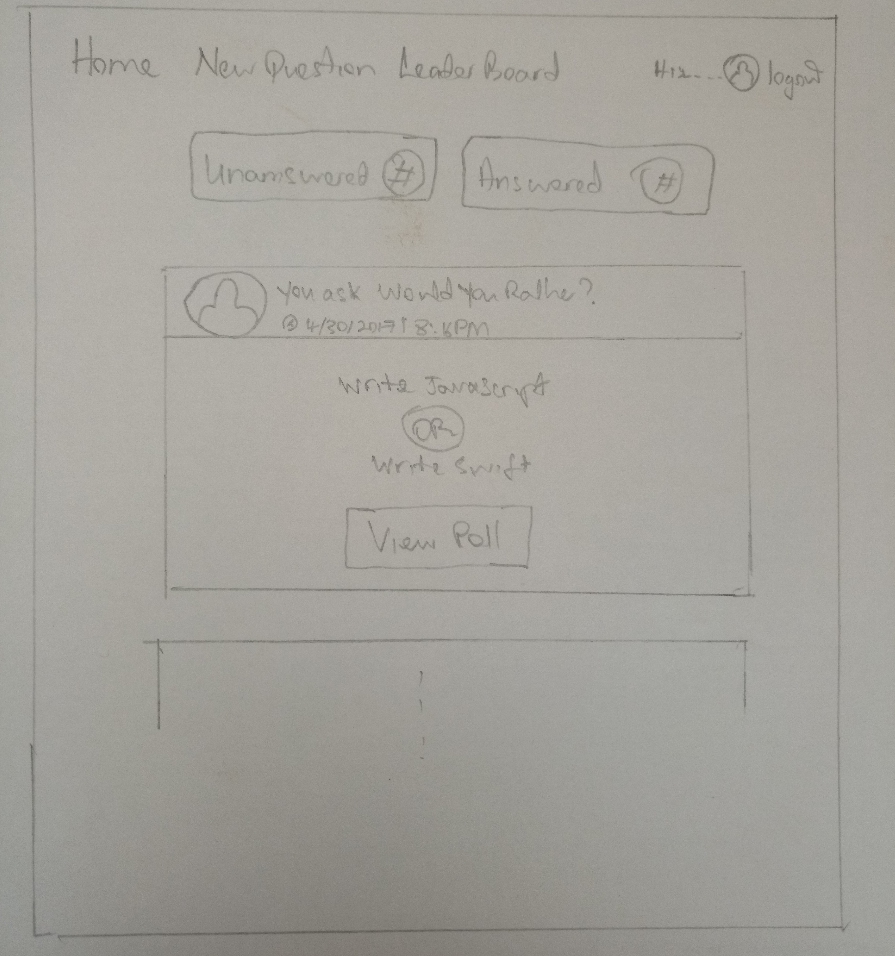 Home New Question Leader Board logout
Unanswered #
Answered #
You ask Would You Rathe?
4/30/2017
Write Javascript
OR
Write Swift
View Poll